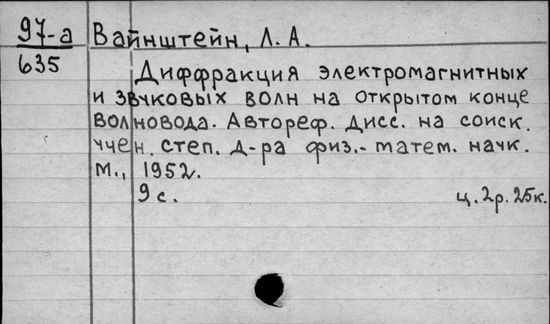 97-а Вайнштейн, Л. А.
635
Диффракция электромагнитных
и звуковых волн на открытом конце
волновода. Автореф. дисс. на соиск.
учен. степ. д-ра физ.-матем. наук.
М., 1952.
9 с. ц. 2р. 25к.